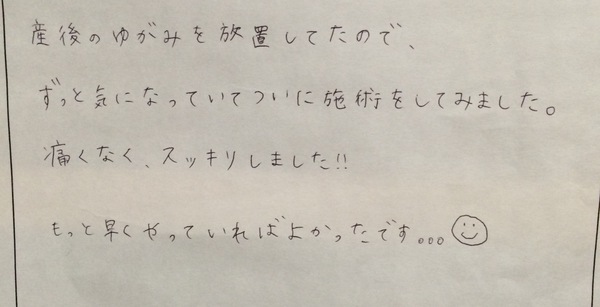 産後のゆがみを放置してたので、
ずっと気になっていてついに施術をしてみました。
痛くなく、スッキリしました!!
もっと早くやっていればよかったです...